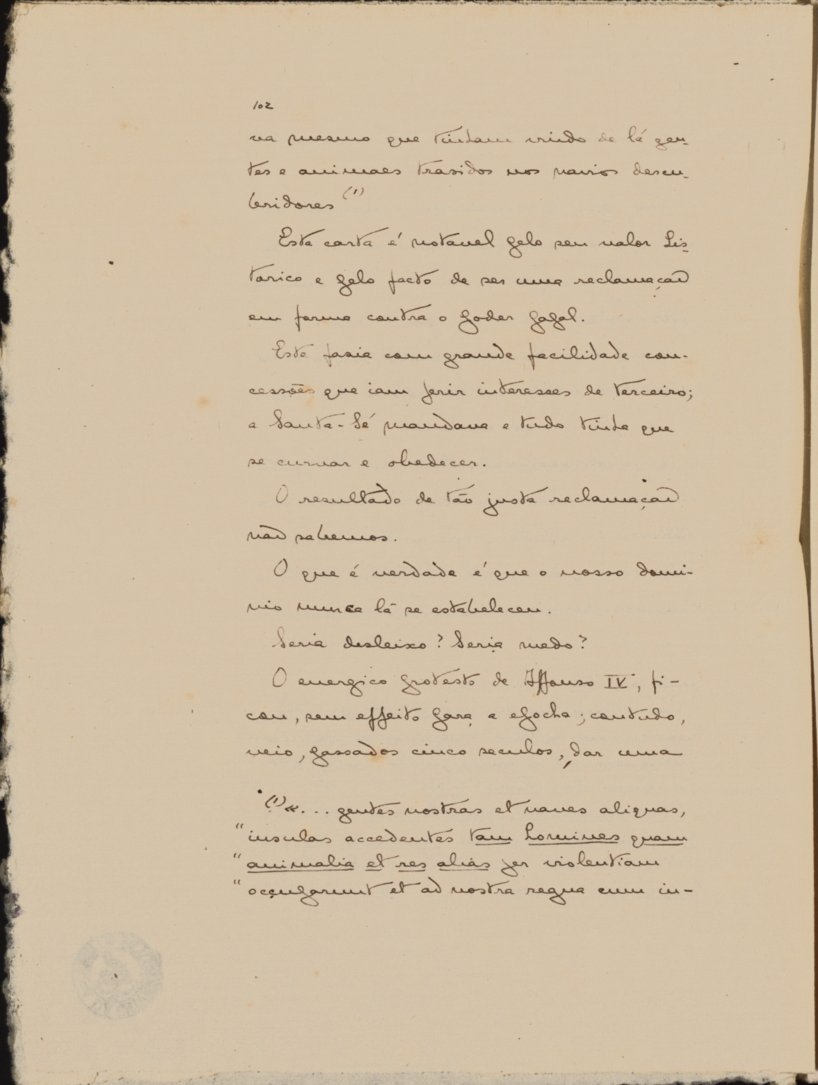 102
va mesmo que tinham vindo de lá gen-
tes e animaes trasidos nos navios descu-
bridores (1)
Esta carta é notavel pelo seu valor his-
torico e pelo facto de ser uma reclamação
em forma contra o poder papal.
Este fasia com grande facilidade con-
cessões que iam ferir interesses de terceiro;
a Santa-Sé mandava e tudo tinha que
se curvar e obedecer.
O resultado de tão justa reclamação
não sabemos.
O que é verdade é que o nosso domi-
nio nunca lá se estabeleceu.
Seria desleixo? Seria medo?
O energico protesto de Affonso IV, fi-
cou, sem effeito para a epocha; contudo,
veio, passados cinco seculos, dar uma
(1) «... gentes nostras et naves aliquas,
"insulas accedentes tam homines quam
"animalia et res alias per violentiam
"occuparunt et ad nostra regna cum in-